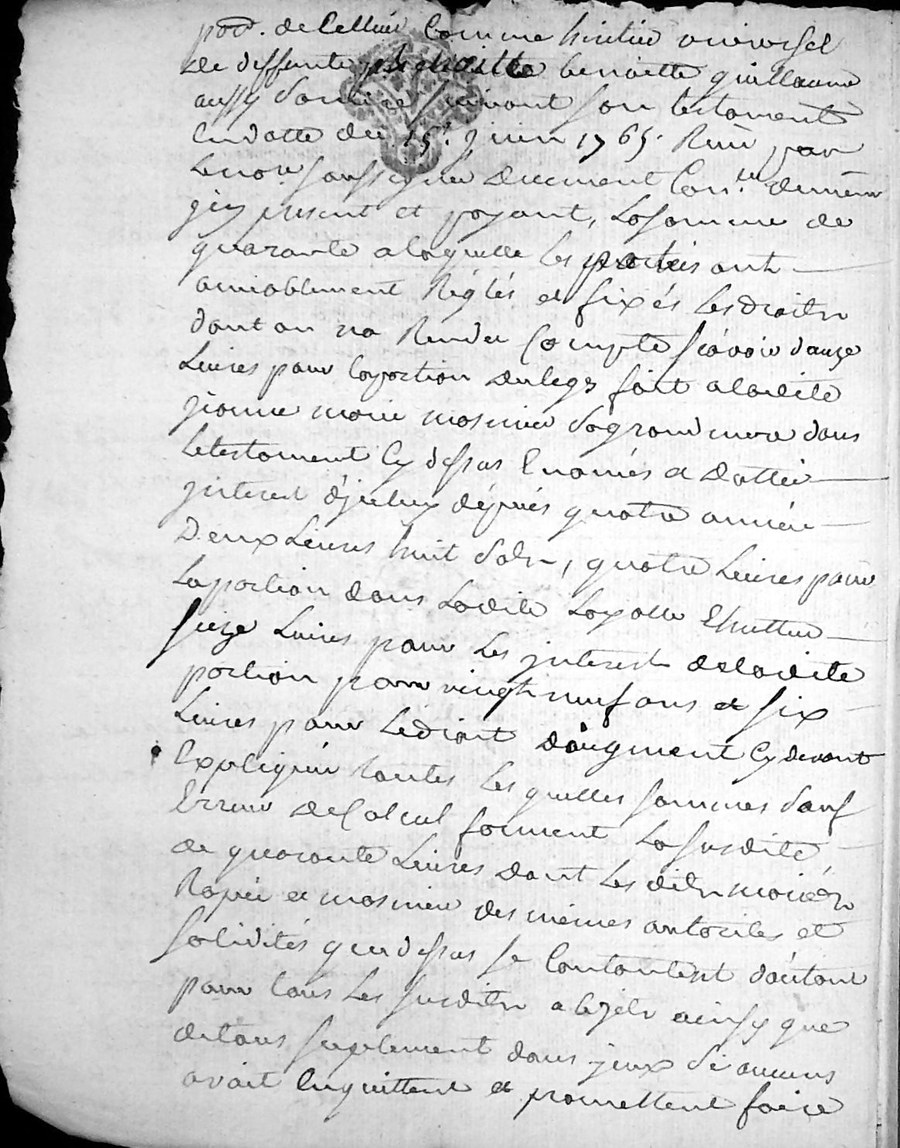 parr. de Cellieu Comme heritier universel
de deffunte benoitte guillaume
aussy Suivant son testament
En datte du 15e. Juin 1765. Reçu par
Le no.re soussigné Duement Con.lé demeur
icy present et payant, la somme de
quarante a laquelle les parties ont
amiablement Réglés et fixés les droits
dont on va Rendre Compte sçavoir douze
Livres pour la portion du legs fait a ladite
jeanne marie mosnier sa grand mere dans
le testament Cy dessus Enoncés et datté
jnterest d'jceluy depuis quatre année
Deux Livres huit sols, quatre Livres pour
la portion dans ladite
seize Livres pour les jnterests de ladite
portion pour vingt neuf ans et six
Livres pour le droit d'augment Cy devant
Expliquée toutes les quelles sommes sauf
Erreur de Calcul forment la susdite
de quarante Livres dont les dits mariés
et mosnier des mêmes autorités et
solidités que dessus se Contentent d'autant
pour tous les susdits objets ainsy que
de tous suplement dans jceux sy aucuns
avoit En quittent et promettent faire